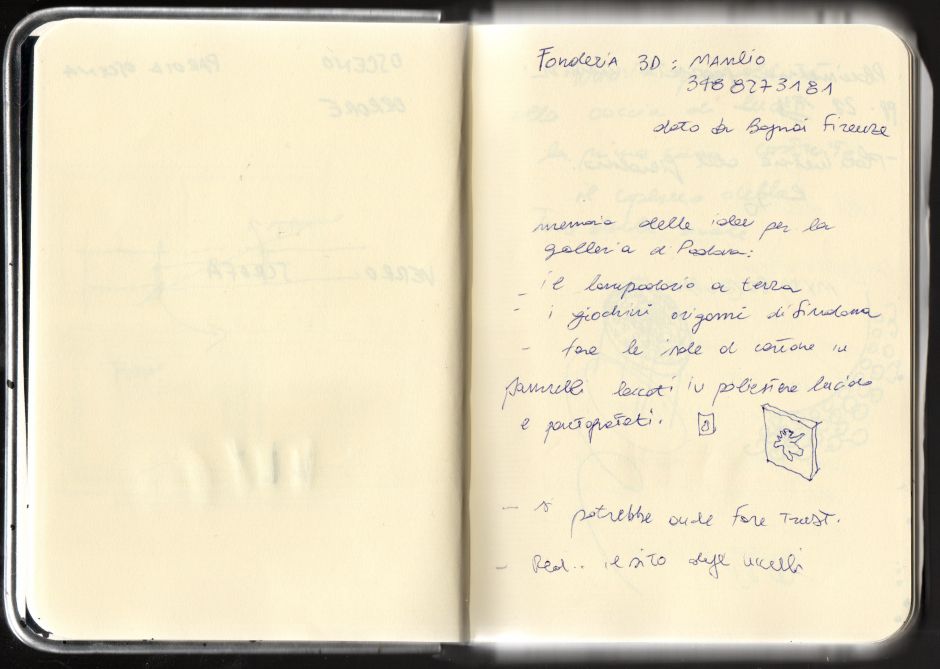 Fonderia 3D: MANLIO
3488273181
dato da Bagnai Firenze
memoria delle idee per la
galleria di Padova:
- il lampadario a terra
- i giochini origami di Sindona
- fare le isole di cartone in
pannelli laccati in poliestere lucido
e pantografati.
- si potrebbe anche fare Trust.
- Red.. il sito degli uccelli